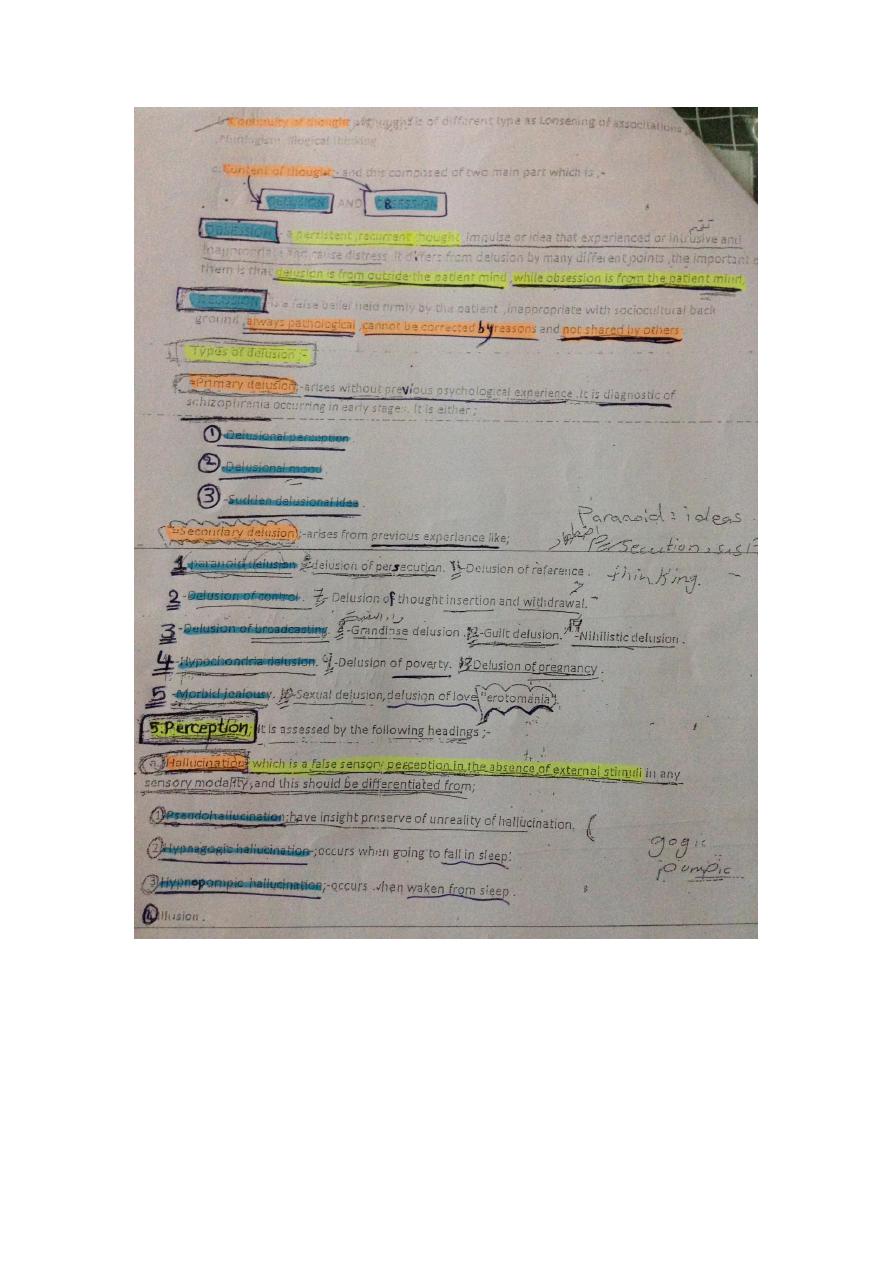 Continuity of thought is of different type as Lonsening of associtations
illogical thinking
c. Content of thought;- and this composed of two main part which is ;-
DELUSION AND OBSESSION
OBSESSION - a persistent ,recurrent thought, impulse or idea that experienced or intrusive and
inappropriate and cause distress. It differs from delusion by many different points ,the important
them is that delusion is from outside the patient mind ,while obsession is from the patient mind,
is a false belief held firmly by the patient ,inappropriate with sociocultural back
ground ,always pathological ,cannot be corrected by reasons and not shared by others
Types of delusion ;-
=Primary delusion;-arises without previous psychological experience .It is diagnostic of
schizophrenia occurring in early stages. It is either ;
1 -Delusional perception
2 -Delusional mood
3 -Sudden delusional idea .
Paranoid : ideas
=Secondary delusion;-arises from previous experience like;
1 paranoid delusion -delusion of persecution. -Delusion of reference .
thinking.
2 -Delusion of control. 7- Delusion of thought insertion and withdrawal.
3 -Delusion of broadcasting. -Grandinse delusion . -Guilt delusion. -Nihilistic delusion .
4 -Hypochondria delusion. 9-Delusion of poverty. -Delusion of pregnancy .
5 -Morbid jealousy. -Sexual delusion, delusion of love "erotomania"
5.Perception; It is assessed by the following headings ;-
a. Hallucination; which is a false sensory perception in the absence of external stimuli in any
sensory modality, and this should be differentiated from;
1 Pseudohallucination ;have insight preserve of unreality of hallucination.
2 Hypnagogic hallucination-;occurs when going to fall in sleep.
gogic
pompic
3 Hypnopompic hallucination;-occurs when waken from sleep .
4 illusion .